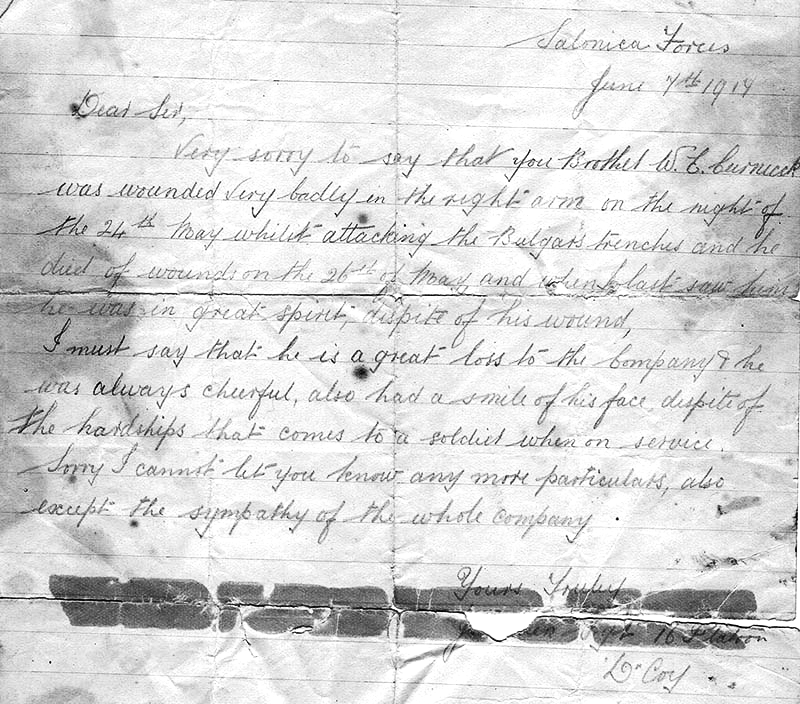 Salonica Forces
June 7th 1917
Dear Sir,
Very sorry to say that you Brother W. E. Curnock
was wounded very badly in the right arm on the night of
the 24th May whilst attacking the Bulgars trenches and he
died of wounds on the 26th of May, and when I last saw him
he was in great spirit, dispite of his wound,
I must say that he is a great loss to the Company & he
was always cheerful, also had a smile of his face dispite of
the hardships that comes to a soldier when on service.
Sorry I cannot let you know any more particulars, also
except the sympathy of the whole company
Yours Truley
Sgt 16 Platoon
"D" Coy